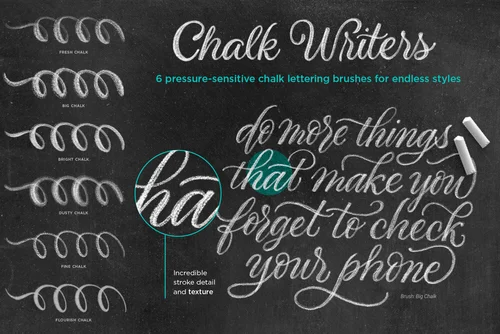 Chalk Writers
6 pressure-sensitive chalk lettering brushes for endless styles
FRESH CHALK
BIG CHALK
BRIGHT CHALK
DUSTY CHALK
FINE CHALK
FLOURISH CHALK
ha
Incredible
stroke detail
and texture
do more things
that make you
forget to check
your phone
Brush: Big Chalk